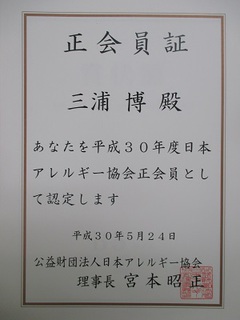 正会員証
三浦 博 殿
あなたを平成30年度日本
アレルギー協会正会員とし
て認定します
平成30年5月24日
公益財団法人日本アレルギー協会
理事長 宮本昭正